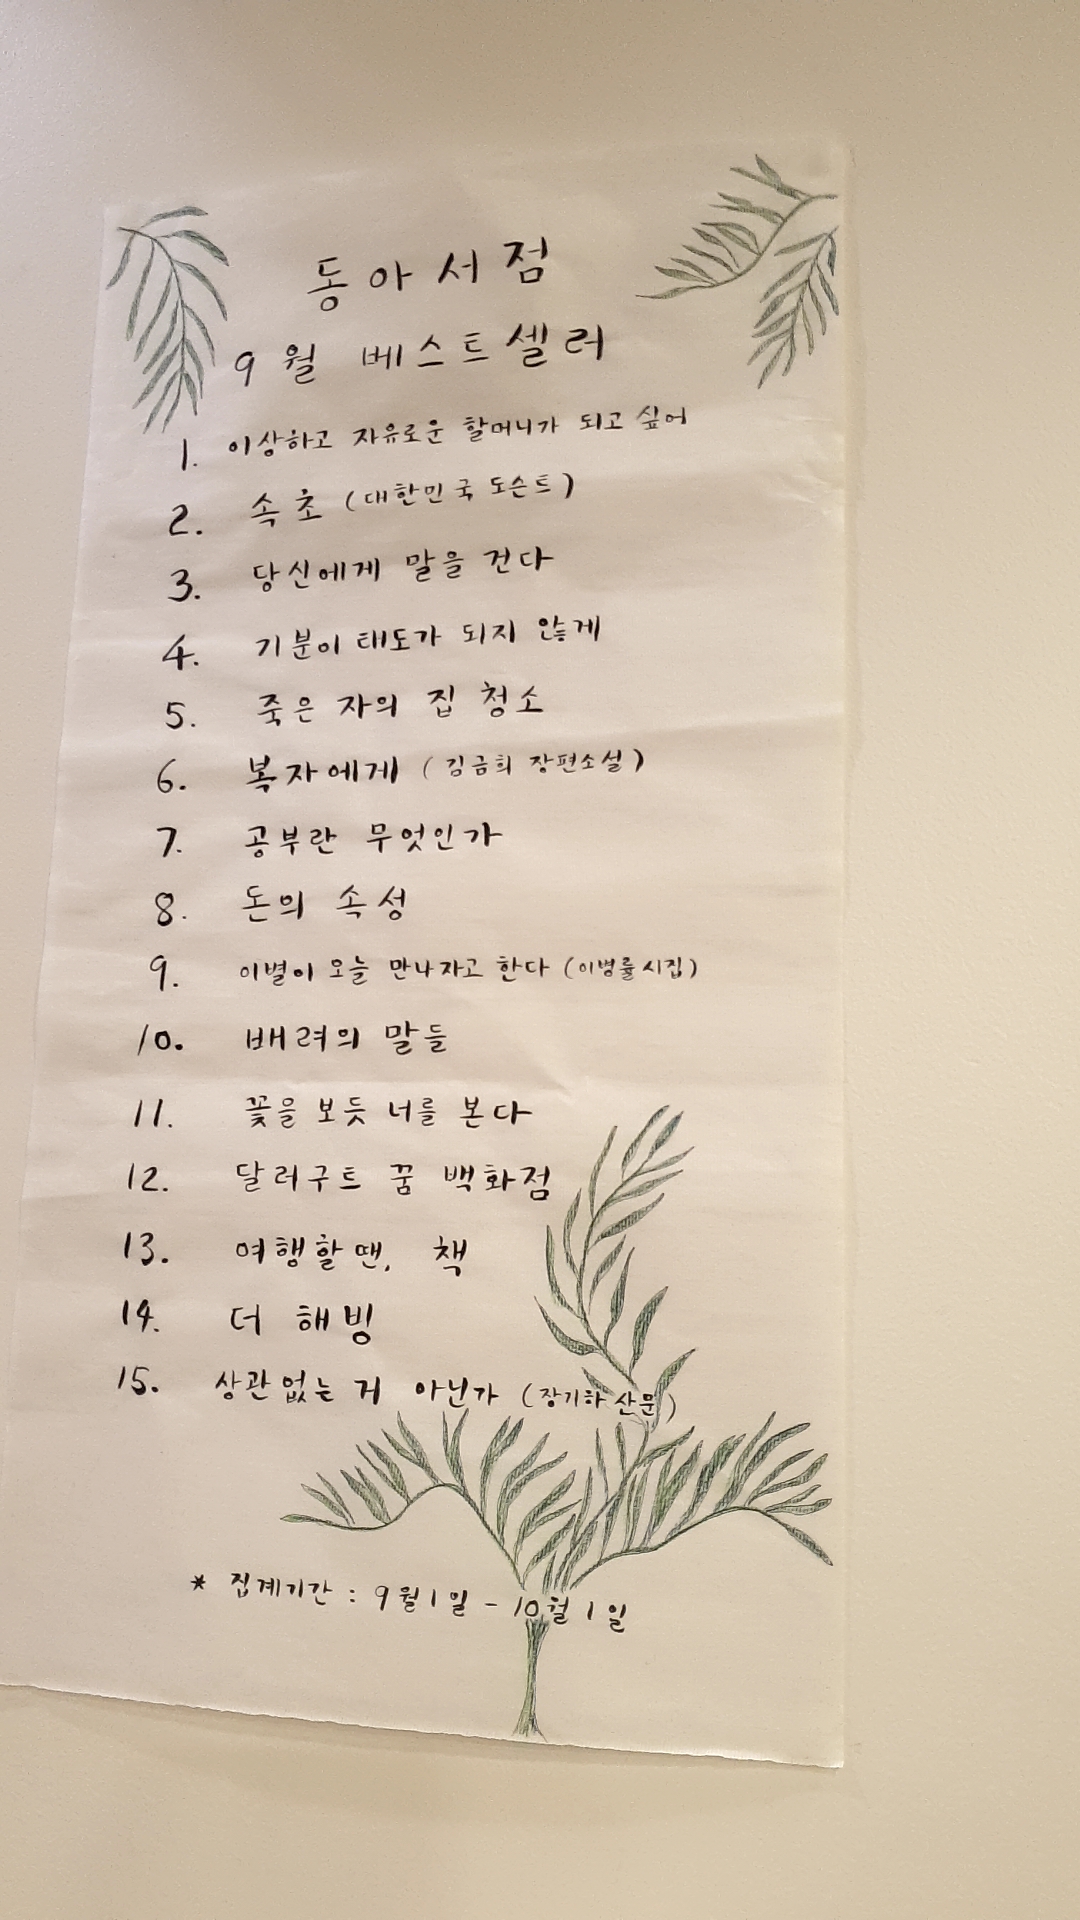 동아서점
9월 베스트셀러
1. 이상하고 자유로운 할머니가 되고 싶어
2. 속초 (대한민국 도슨트)
3. 당신에게 말을 건다
4. 기분이 태도가 되지 않게
5. 죽은 자의 집 청소
6. 복자에게 (김금희 장편소설)
7. 공부란 무엇인가
8. 돈의 속성
9. 이별이 오늘 만나자고 한다 (이병률 시집)
10. 배려의 말들
11. 꽃을 보듯 너를 본다
12. 달러구트 꿈 백화점
13. 여행할땐, 책
14. 더 해빙
15. 상관없는 거 아닌가 (장기하 산문)
* 집계기간 : 9월1일 - 10월1일